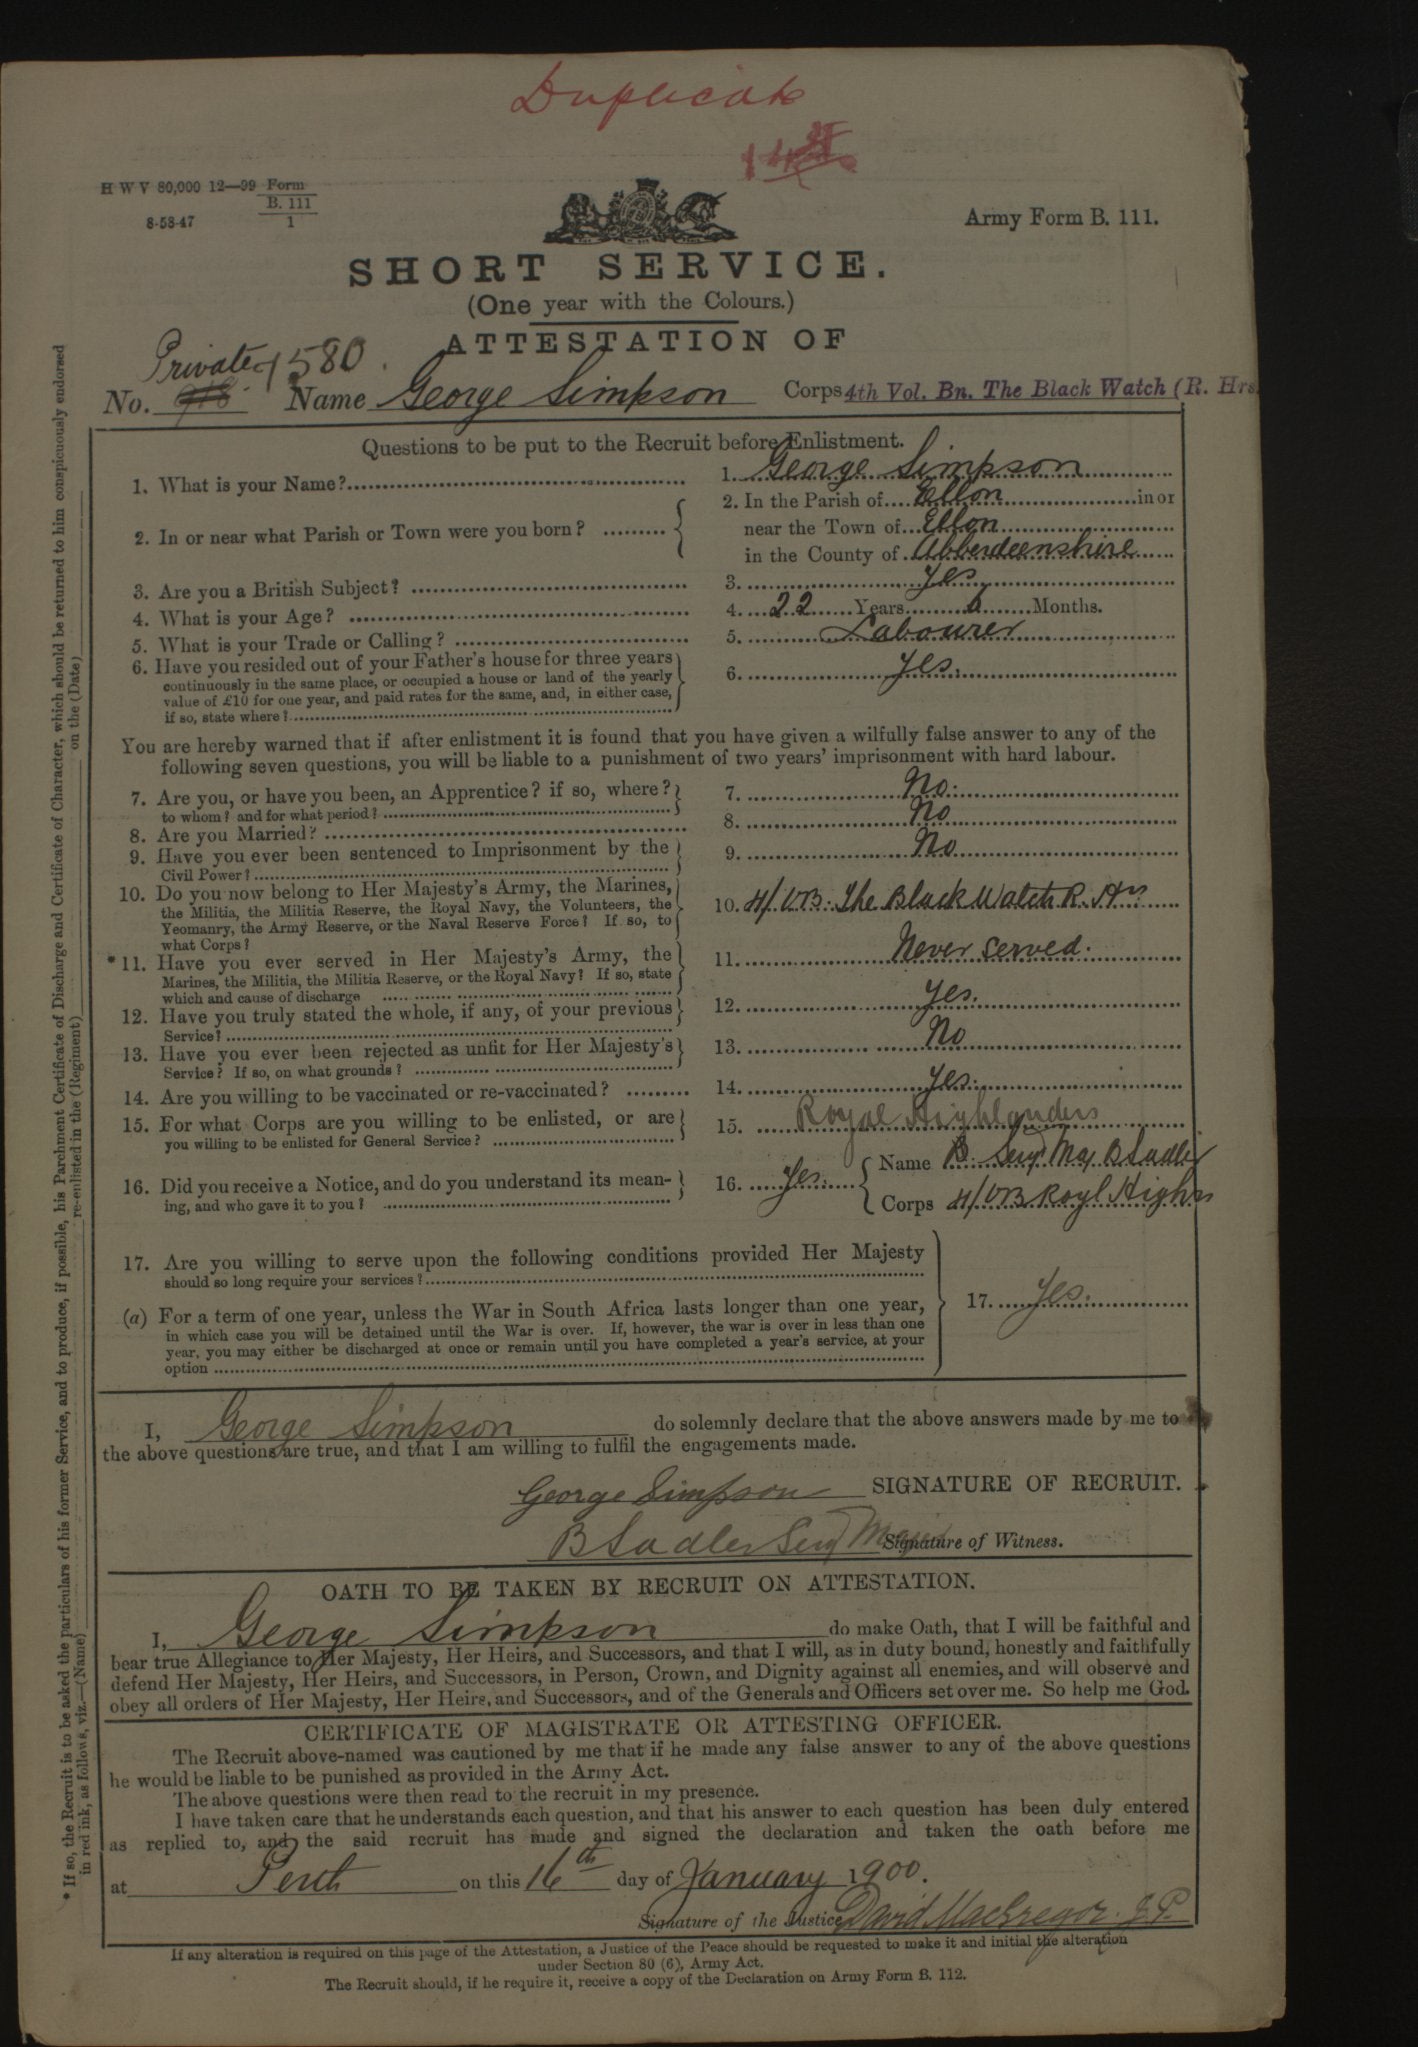 Duplicate
H W V 80,000 12—99 Form B. 111 1
8-58-47
Army Form B. 111.
SHORT SERVICE.
(One year with the Colours.)
ATTESTATION OF
Private 1580.
No. Name George Simpson Corps 4th Vol. Bn. The Black Watch (R. Hrs
Questions to be put to the Recruit before Enlistment.
1. What is your Name? 1. George Simpson
2. In or near what Parish or Town were you born? 2. In the Parish of Ellon in or
near the Town of Ellon
in the County of Abberdeenshire
3. Are you a British Subject? 3. Yes
4. What is your Age? 4. 22 Years 6 Months.
5. What is your Trade or Calling? 5. Labourer
6. Have you resided out of your Father's house for three years
continuously in the same place, or occupied a house or land of the yearly
value of £10 for one year, and paid rates for the same, and, in either case,
if so, state where? 6. Yes.
You are hereby warned that if after enlistment it is found that you have given a wilfully false answer to any of the
following seven questions, you will be liable to a punishment of two years' imprisonment with hard labour.
7. Are you, or have you been, an Apprentice? if so, where?
to whom? and for what period? 7. No.
8. Are you Married? 8. No
9. Have you ever been sentenced to Imprisonment by the
Civil Power? 9. No
10. Do you now belong to Her Majesty's Army, the Marines,
the Militia, the Militia Reserve, the Royal Navy, the Volunteers, the
Yeomanry, the Army Reserve, or the Naval Reserve Force? If so, to
what Corps? 10. 4/VB. The Black Watch R. Hrs
*11. Have you ever served in Her Majesty's Army, the
Marines, the Militia, the Militia Reserve, or the Royal Navy? If so, state
which and cause of discharge 11. Never served.
12. Have you truly stated the whole, if any, of your previous
Service? 12. Yes.
13. Have you ever been rejected as unfit for Her Majesty's
Service? If so, on what grounds? 13. No
14. Are you willing to be vaccinated or re-vaccinated? 14. Yes.
15. For what Corps are you willing to be enlisted, or are
you willing to be enlisted for General Service? 15. Royal Highlanders
16. Did you receive a Notice, and do you understand its mean-
ing, and who gave it to you? 16. Yes. Name B. Sergt Maj B Sadler
Corps 4/VB Royl Highrs
17. Are you willing to serve upon the following conditions provided Her Majesty
should so long require your services?
(a) For a term of one year, unless the War in South Africa lasts longer than one year,
in which case you will be detained until the War is over. If, however, the war is over in less than one
year, you may either be discharged at once or remain until you have completed a year's service, at your
option 17. Yes.
I, George Simpson do solemnly declare that the above answers made by me to
the above questions are true, and that I am willing to fulfil the engagements made.
George Simpson SIGNATURE OF RECRUIT.
B Sadler Sergt Major Signature of Witness.
OATH TO BE TAKEN BY RECRUIT ON ATTESTATION.
I, George Simpson do make Oath, that I will be faithful and
bear true Allegiance to Her Majesty, Her Heirs, and Successors, and that I will, as in duty bound, honestly and faithfully
defend Her Majesty, Her Heirs, and Successors, in Person, Crown, and Dignity against all enemies, and will observe and
obey all orders of Her Majesty, Her Heirs, and Successors, and of the Generals and Officers set over me. So help me God.
CERTIFICATE OF MAGISTRATE OR ATTESTING OFFICER.
The Recruit above-named was cautioned by me that if he made any false answer to any of the above questions
he would be liable to be punished as provided in the Army Act.
The above questions were then read to the recruit in my presence.
I have taken care that he understands each question, and that his answer to each question has been duly entered
as replied to, and the said recruit has made and signed the declaration and taken the oath before me
at Perth on this 16th day of January 1900.
Signature of the Justice David MacGregor. J.P.
If any alteration is required on this page of the Attestation, a Justice of the Peace should be requested to make it and initial the alteration
under Section 80 (6), Army Act.
The Recruit should, if he require it, receive a copy of the Declaration on Army Form B. 112.
* If so, the Recruit is to be asked the particulars of his former Service, and to produce, if possible, his Parchment Certificate of Discharge and Certificate of Character, which should be returned to him conspicuously endorsed
in red ink, as follows, viz.—(Name) re-enlisted in the (Regiment) on the (Date)